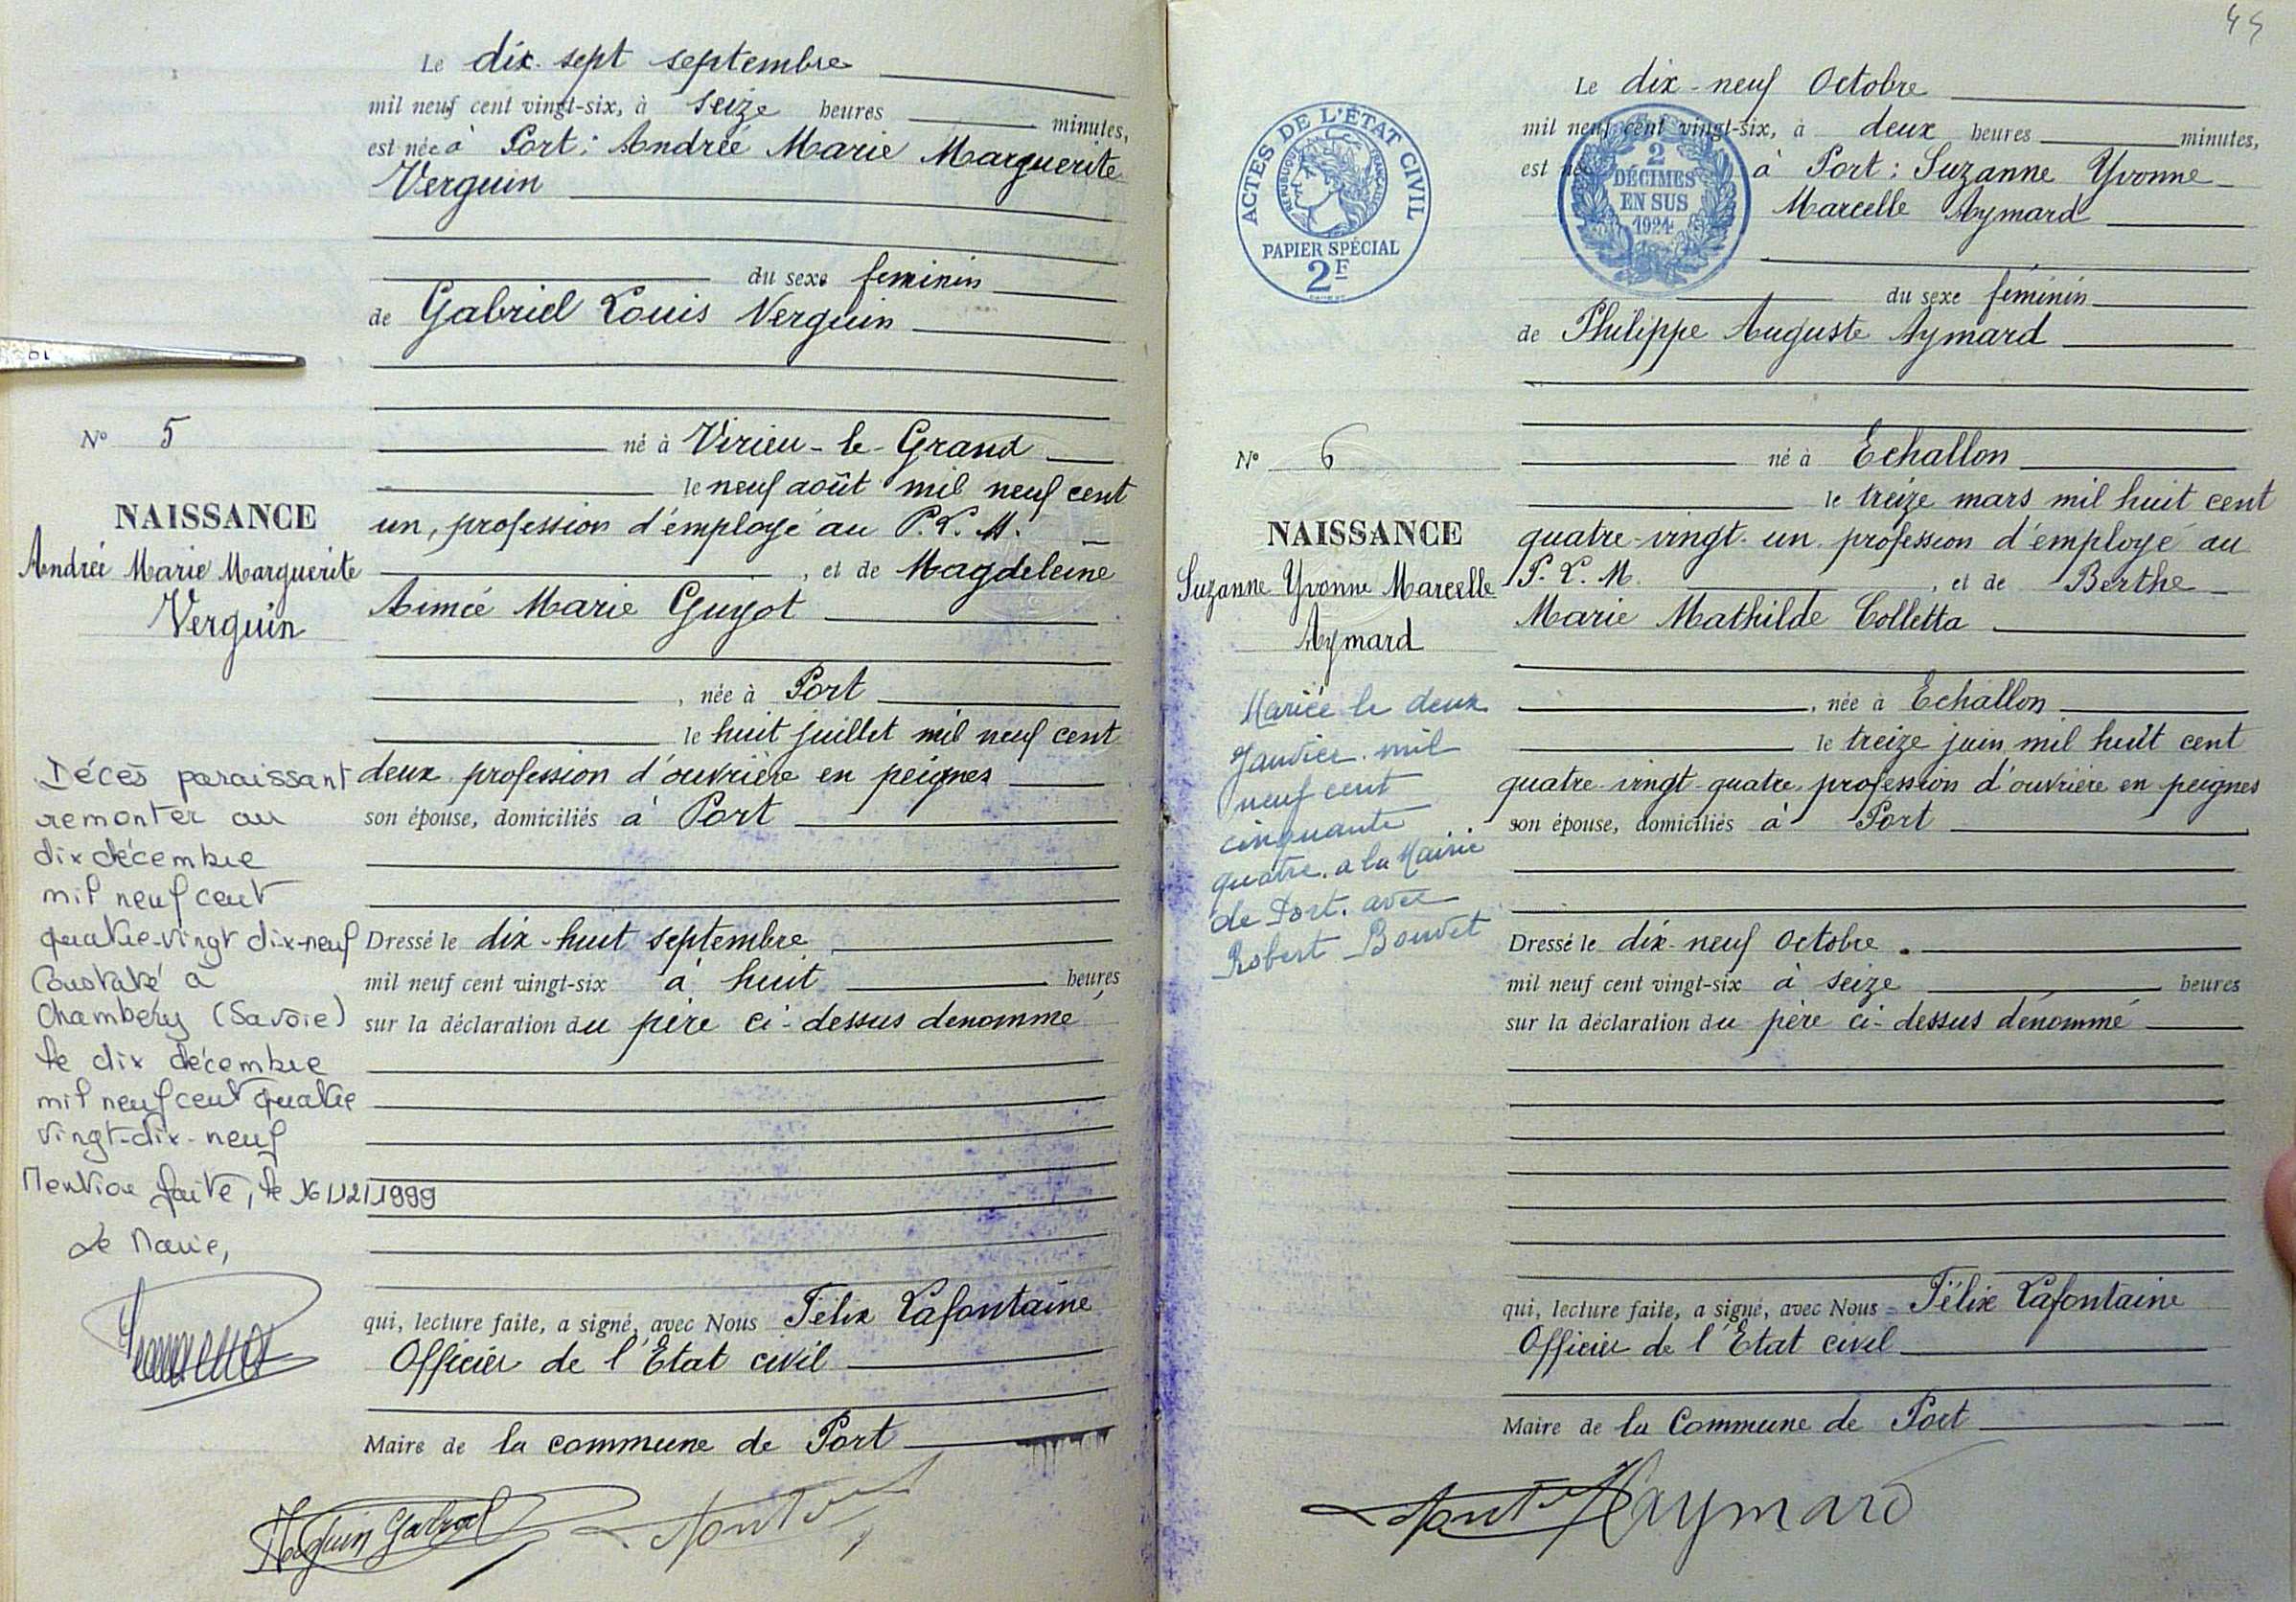 Le dix-sept septembre
mil neuf cent vingt-six, à seize heures minutes,
est née à Port : Andrée Marie Marguerite
Verguin
du sexe féminin
de Gabriel Louis Verguin
né à Virieu-le-Grand
le neuf août mil neuf cent
un, profession d'employé au P.L.M.
, et de Magdeleine
Aimée Marie Guyot
, née à Port
le huit juillet mil neuf cent
deux, profession d'ouvrière en peignes
son épouse, domiciliés à Port
Dressé le dix-huit septembre
mil neuf cent vingt-six à huit heures
sur la déclaration du père ci-dessus dénommé
qui, lecture faite, a signé, avec Nous Félix Lafontaine
Officier de l'Etat civil
Maire de la commune de Port
Verguin Gabriel
N° 5
NAISSANCE
Andrée Marie Marguerite
Verguin
Décès paraissant
remonter au
dix décembre
mil neuf cent
quatre-vingt dix-neuf
Constaté à
Chambéry (Savoie)
le dix décembre
mil neuf cent quatre
vingt-dix-neuf
Mention faite, le 16/12/1999
Le Maire,
45
Le dix-neuf Octobre
mil neuf cent vingt-six, à deux heures minutes,
est née à Port : Suzanne Yvonne
Marcelle Aymard
du sexe féminin
de Philippe Auguste Aymard
né à Echallon
le treize mars mil huit cent
quatre-vingt-un, profession d'employé au
P.L.M. , et de Berthe
Marie Mathilde Colletta
, née à Echallon
le treize juin mil huit cent
quatre-vingt-quatre, profession d'ouvrière en peignes
son épouse, domiciliés à Port
Dressé le dix-neuf Octobre.
mil neuf cent vingt-six à seize heures
sur la déclaration du père ci-dessus dénommé
qui, lecture faite, a signé, avec Nous Félix Lafontaine
Officier de l'Etat civil
Maire de la Commune de Port
Aymard
ACTES DE L'ÉTAT CIVIL
RÉPUBLIQUE FRANÇAISE
PAPIER SPÉCIAL
2F
2
DÉCIMES
EN SUS
1924
N° 6
NAISSANCE
Suzanne Yvonne Marcelle
Aymard
Mariée le deux
Janvier mil
neuf cent
cinquante
quatre, a la Mairie
de Port. avec
Robert Bouvet